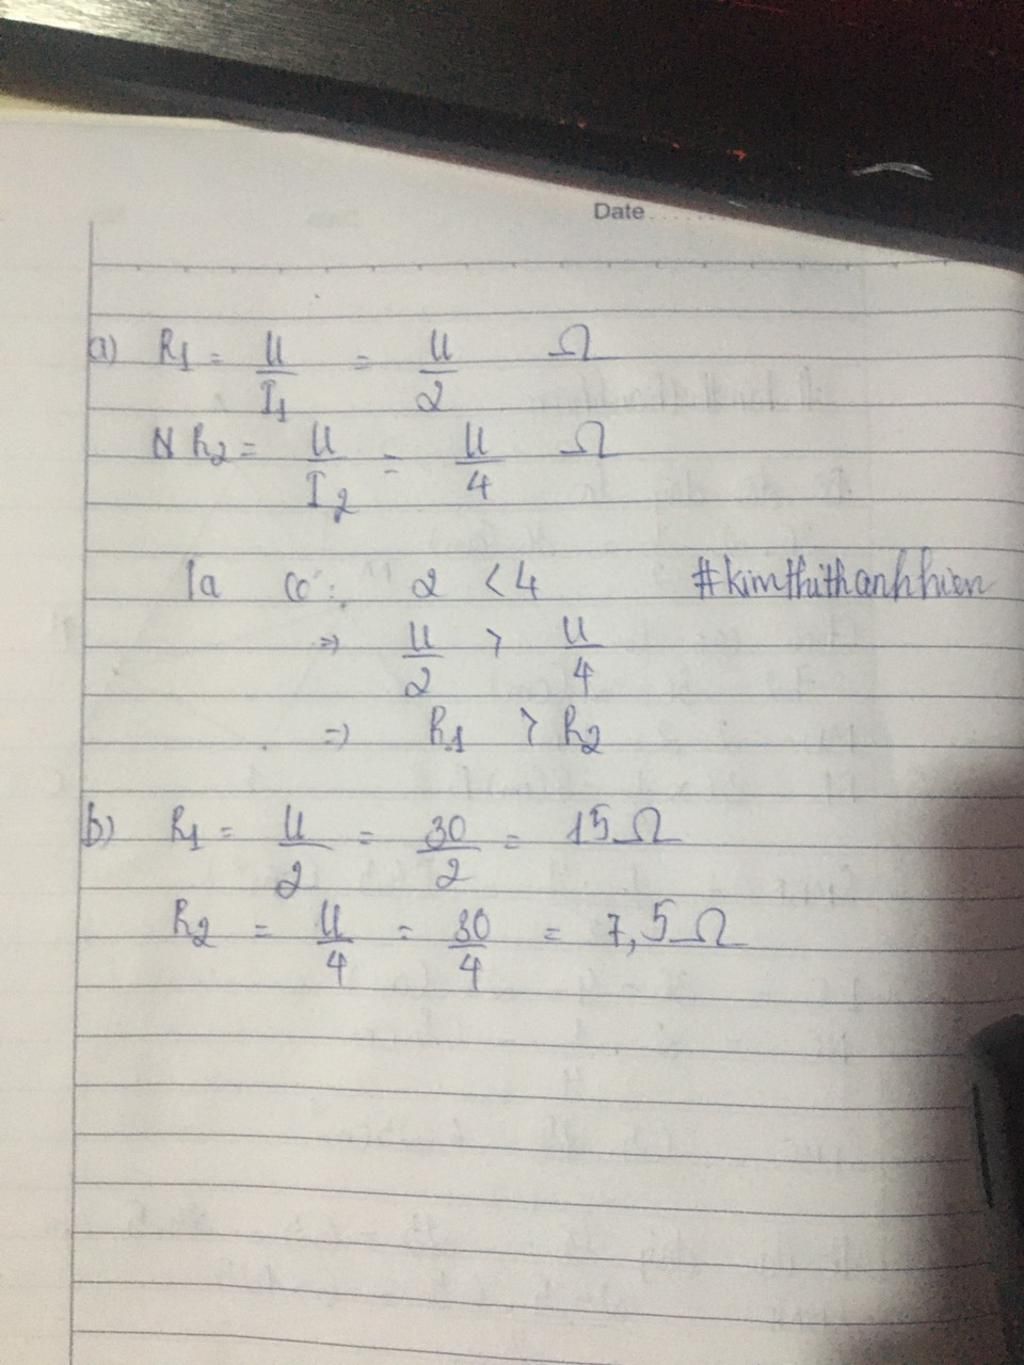 Date
a) R1 = U/I1 = U/2 Ω
R2 = U/I2 = U/4 Ω
Ta có: 2 < 4 #kimthithanhhien
=> U/2 > U/4
=> R1 > R2
b) R1 = U/2 = 30/2 = 15Ω
R2 = U/4 = 30/4 = 7,5Ω